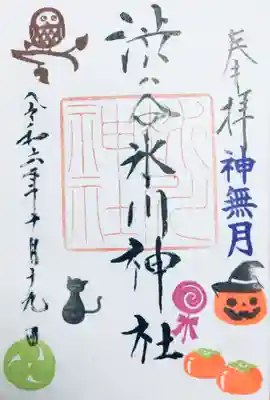 奉拝
神無月
渋谷氷川神社
氷川神社
令和六年十月十九日